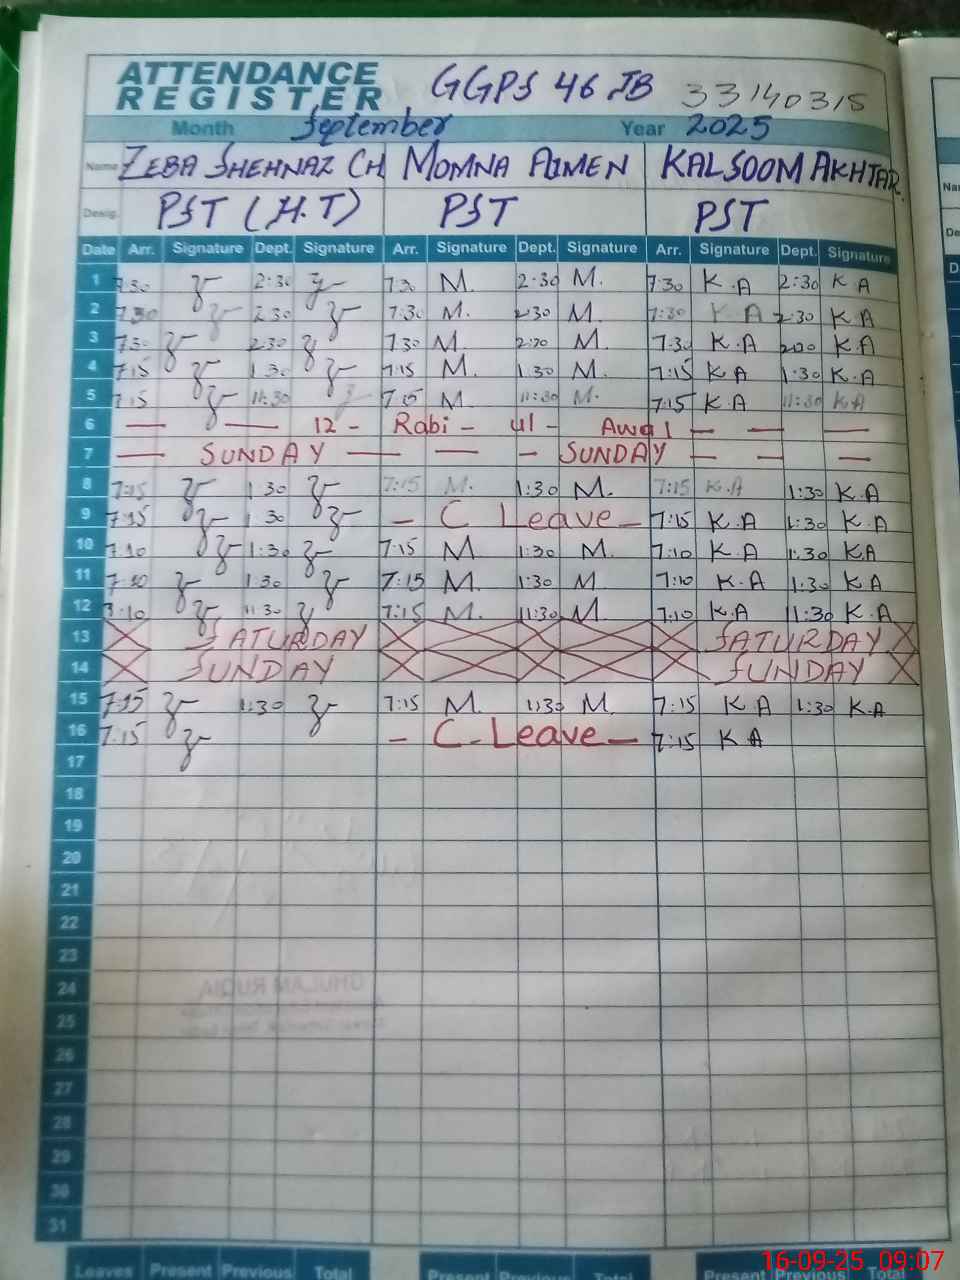 ATTENDANCE REGISTER GGPS 46 JB 33140315
Month September Year 2025
Name ZEBA SHEHNAZ CH MOMNA AIMEN KALSOOM AKHTAR
Desig. PST (H.T) PST PST
Date Arr. Signature Dept. Signature Arr. Signature Dept. Signature Arr. Signature Dept. Signature
1 7:30 2:30 7:30 M. 2:30 M. 7:30 K.A 2:30 K.A
2 7:30 2:30 7:30 M. 2:30 M. 7:30 K.A 2:30 K.A
3 7:30 2:30 7:30 M. M. 7:30 K.A K.A
4 7:15 1:30 7:15 M. 1:30 M. 7:15 K.A 1:30 K.A
5 7:15 11:30 7:15 M. 11:30 M. 7:15 K.A 11:30 K.A
6 — — 12 - Rabi - ul - Awal — — —
7 — SUNDAY — — - SUNDAY — — —
8 7:15 1:30 7:15 M. 1:30 M. 7:15 K.A 1:30 K.A
9 1:30 — C Leave — 7:15 K.A 1:30 K.A
10 7:10 1:30 7:15 M. 1:30 M. 7:10 K.A 1:30 K.A
11 7:10 1:30 7:15 M. 1:30 M. 7:10 K.A 1:30 K.A
12 7:10 11:30 7:15 M. 11:30 M. 7:10 K.A 11:30 K.A
13 SATURDAY SATURDAY
14 SUNDAY SUNDAY
15 7:15 1:30 7:15 M. 1:30 M. 7:15 K.A 1:30 K.A
16 7:15 — C-Leave — 7:15 K.A
17
18
19
20
21
22
23
24
25
26
27
28
29
30
31
Leaves Present Previous Total Present Previous Total Present Previous Total
16-09-25 09:07